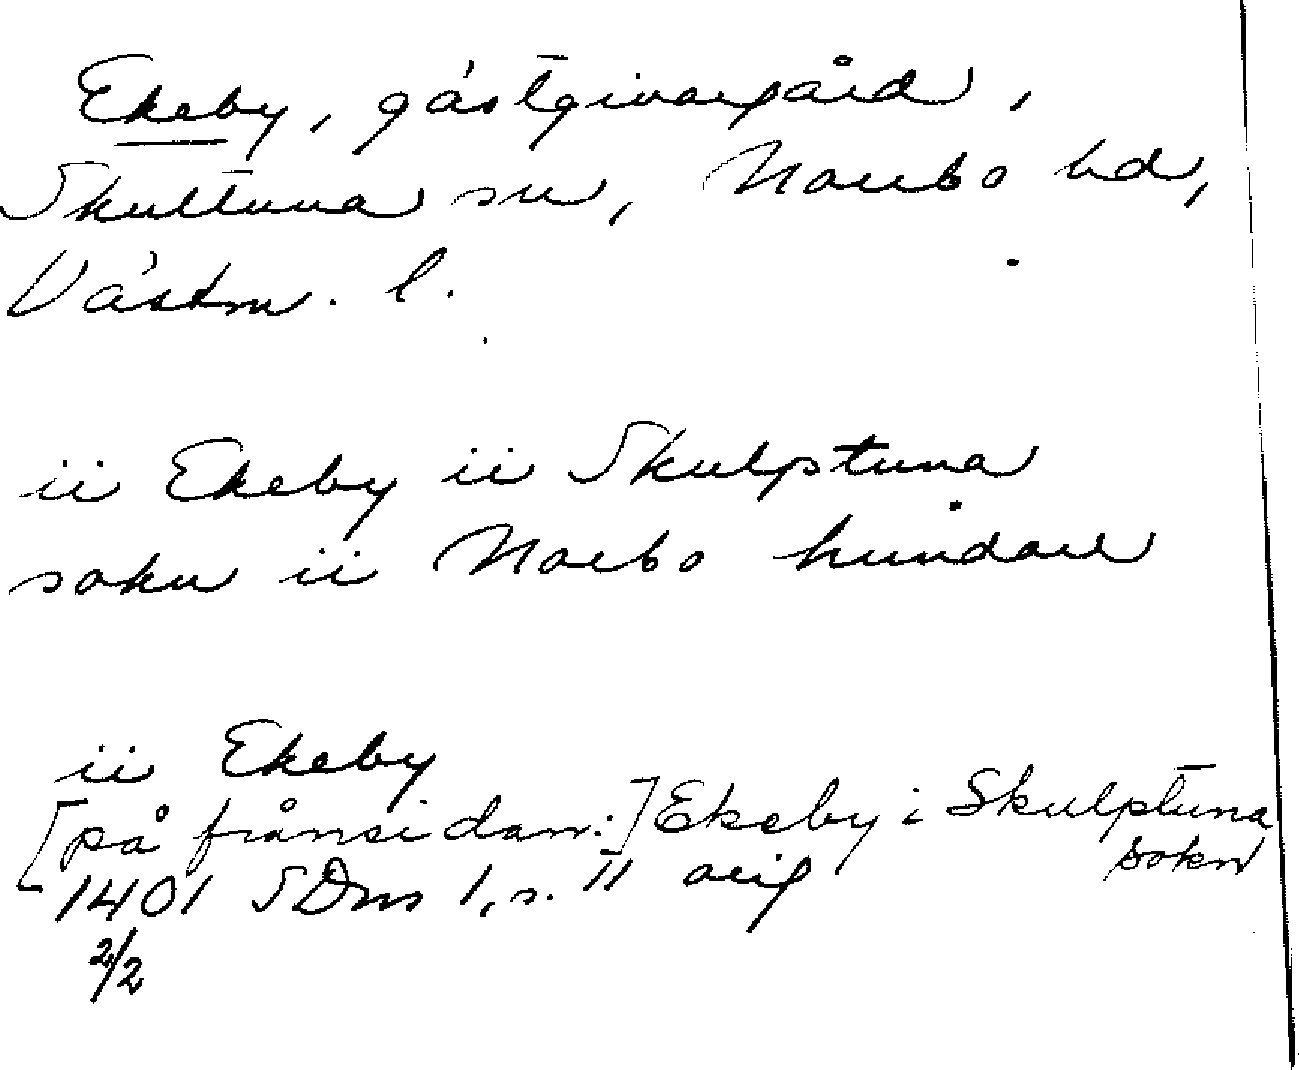 Ekeby, gästgivargård,
Skultuna sn, Norrbo hd,
Västm. l.
ii Ekeby ii Skulptuna
sokn ii Norbo hundare
ii Ekeby
[på frånsidan:] Ekeby i Skulptuna
sokn
1401 SDns 1, s. 11 orig
2/2